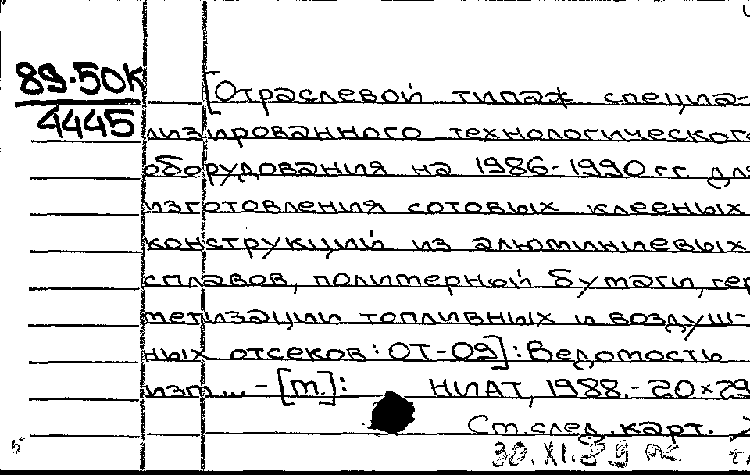 89-50К
4445
[Отраслевой типаж специа-
лизированного технологического
оборудования на 1986-1990 гг. для
изготовления сотовых клееных
конструкций из алюминиевых
сплавов, полимерной бумаги, гер
метизации топливных и воздуш-
ных отсеков: ОТ-09]: Ведомость
изм... - [М.]: НИАТ, 1988. - 20×29
См. след. карт.
30.XI.89